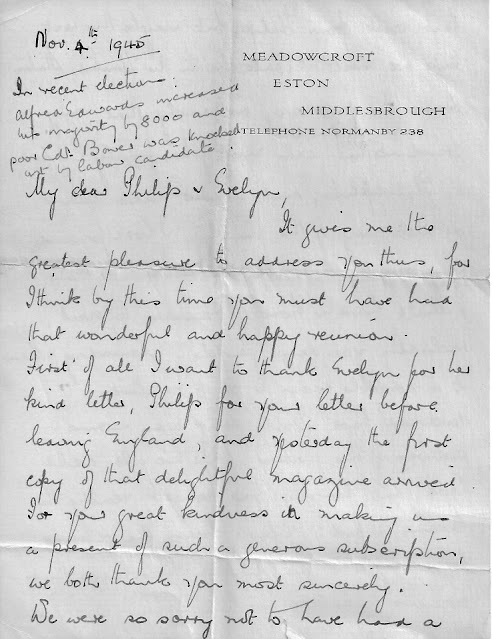 Nov. 4th 1945
MEADOWCROFT
ESTON
MIDDLESBROUGH
TELEPHONE NORMANBY 238
In recent election:
Alfred Edwards increased
his majority by 8000 and
poor Cdr. Bower was knocked
out by labour candidate.
My dear Philip & Evelyn,
It gives me the
greatest pleasure to address you thus, for
I think by this time you must have had
that wonderful and happy reunion.
First of all I want to thank Evelyn for her
kind letter, Philip for your letter before
leaving England, and yesterday the first
copy of that delightful magazine arrived.
For your great kindness in making us
a present of such a generous subscription,
we both thank you most sincerely.
We were so sorry not to have had a